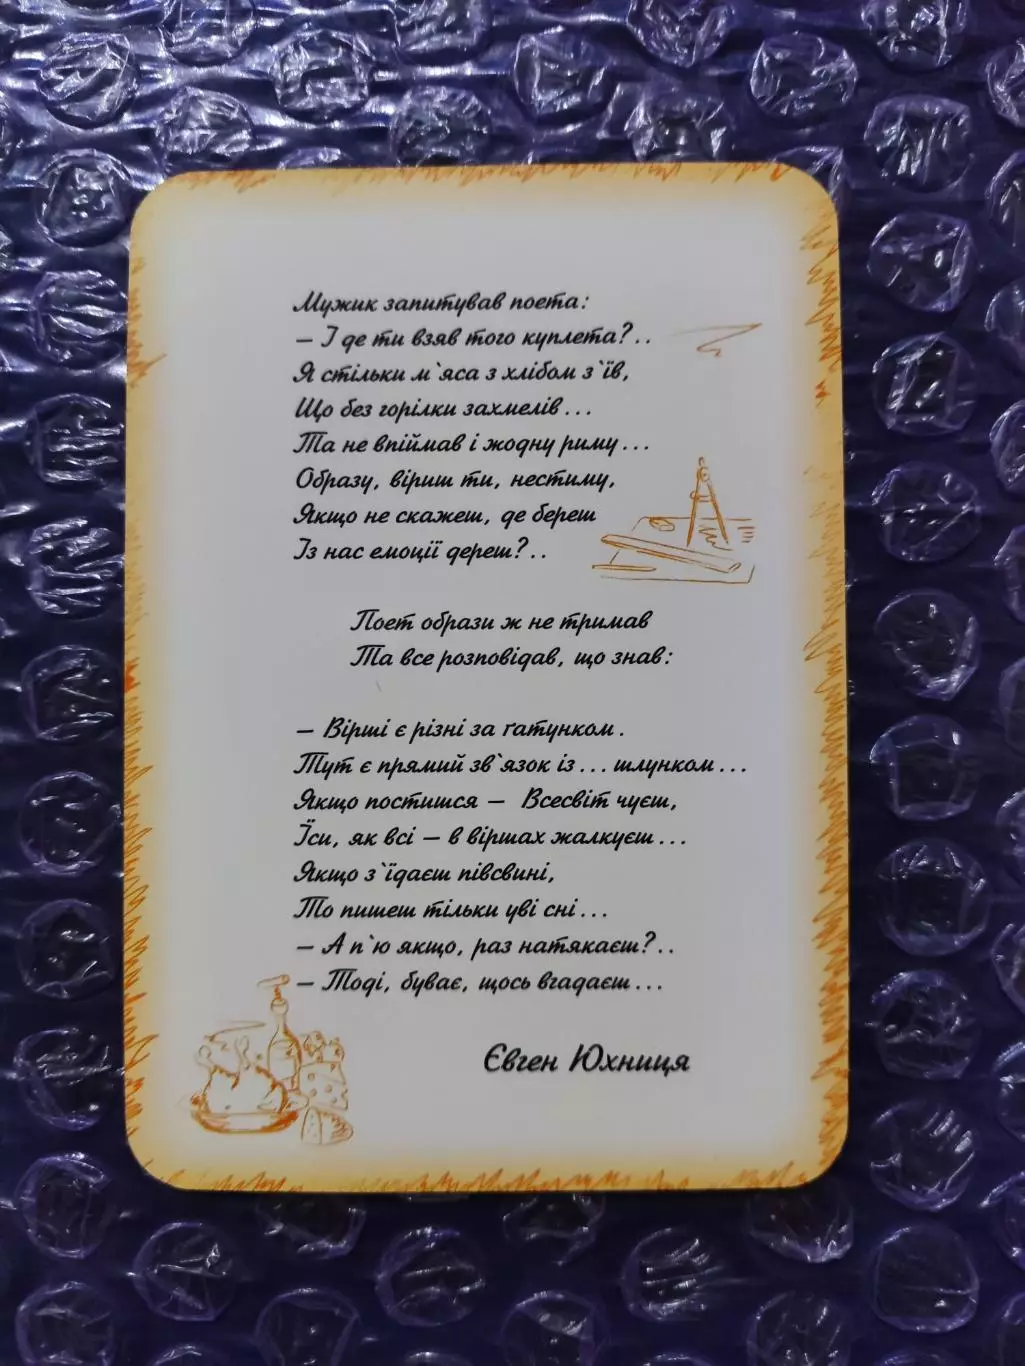 Мужик запитував поета:
– І де ти взяв того куплета?..
Я стільки м`яса з хлібом з`їв,
Що без горілки захмелів...
Та не впіймав і жодну риму...
Образу, віриш ти, нестиму,
Якщо не скажеш, де береш
Із нас емоції дереш?..
Поет образи ж не тримав
Та все розповідав, що знав:
– Вірші є різні за ґатунком.
Тут є прямий зв`язок із... шлунком...
Якщо постишся – Всесвіт чуєш,
Їси, як всі – в віршах жалкуєш...
Якщо з`їдаєш півсвині,
То пишеш тільки уві сні...
– А п`ю якщо, раз натякаєш?..
– Тоді, буває, щось вгадаєш...
Євген Юхниця